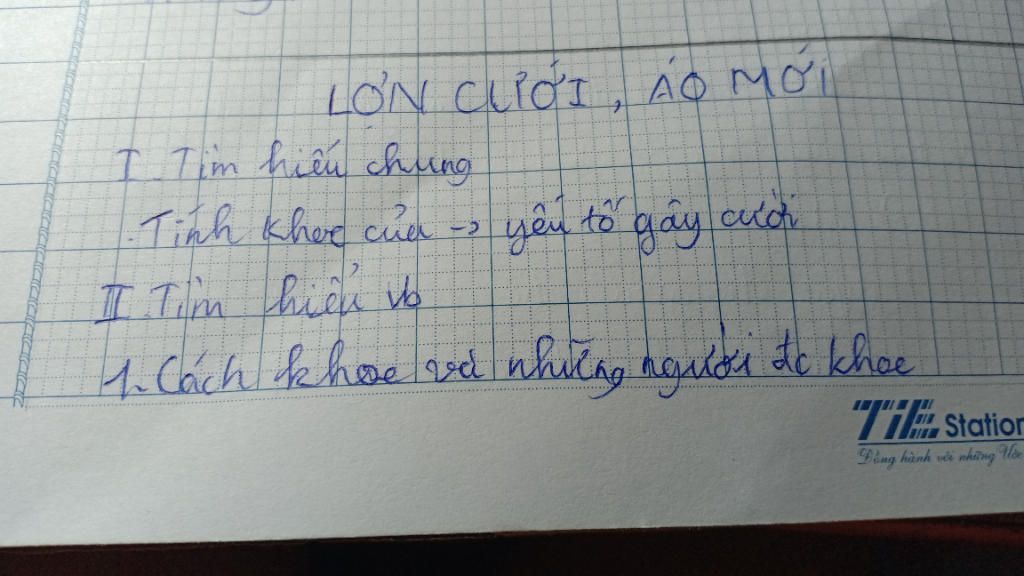 LỢN CƯỚI, ÁO MỚI
I. Tìm hiểu chung
. Tính khoe của -> yếu tố gây cười
II. Tìm hiểu vb
1. Cách khoe và những người đc khoe
TiE Station
Đồng hành với những Ước